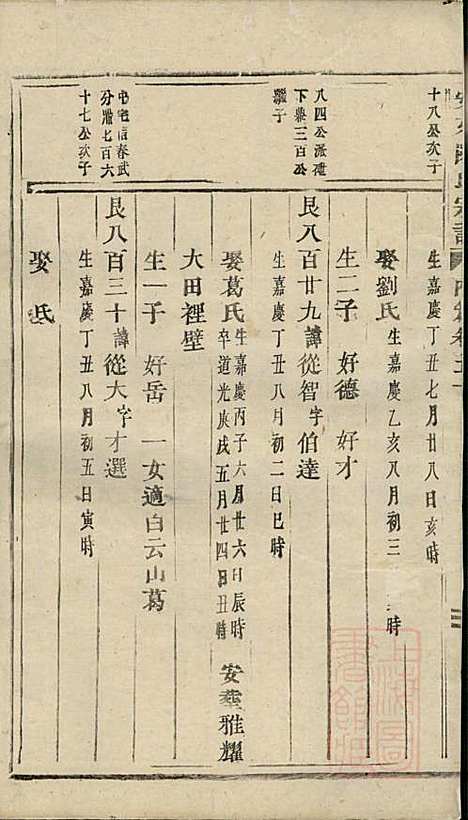 十八公次子
生嘉慶丁丑七月廿八日亥時
娶劉氏 生嘉慶乙亥八月初三 時
生二子 好德 好才
八四公派
下 三百公
子
艮八百廿九 諱從智 字伯達
生嘉慶丁丑八月初二日巳時
娶葛氏 生嘉慶丙子六月廿六日辰時
卒道光庚戌五月廿四日丑時 安塟雅耀
大田裡壁
生一子 好岳 一女適白云山葛
屯宅信春武
分 七百六
十七公次子
艮八百三十 諱從大 字才選
生嘉慶丁丑八月初五日寅時
娶 氏